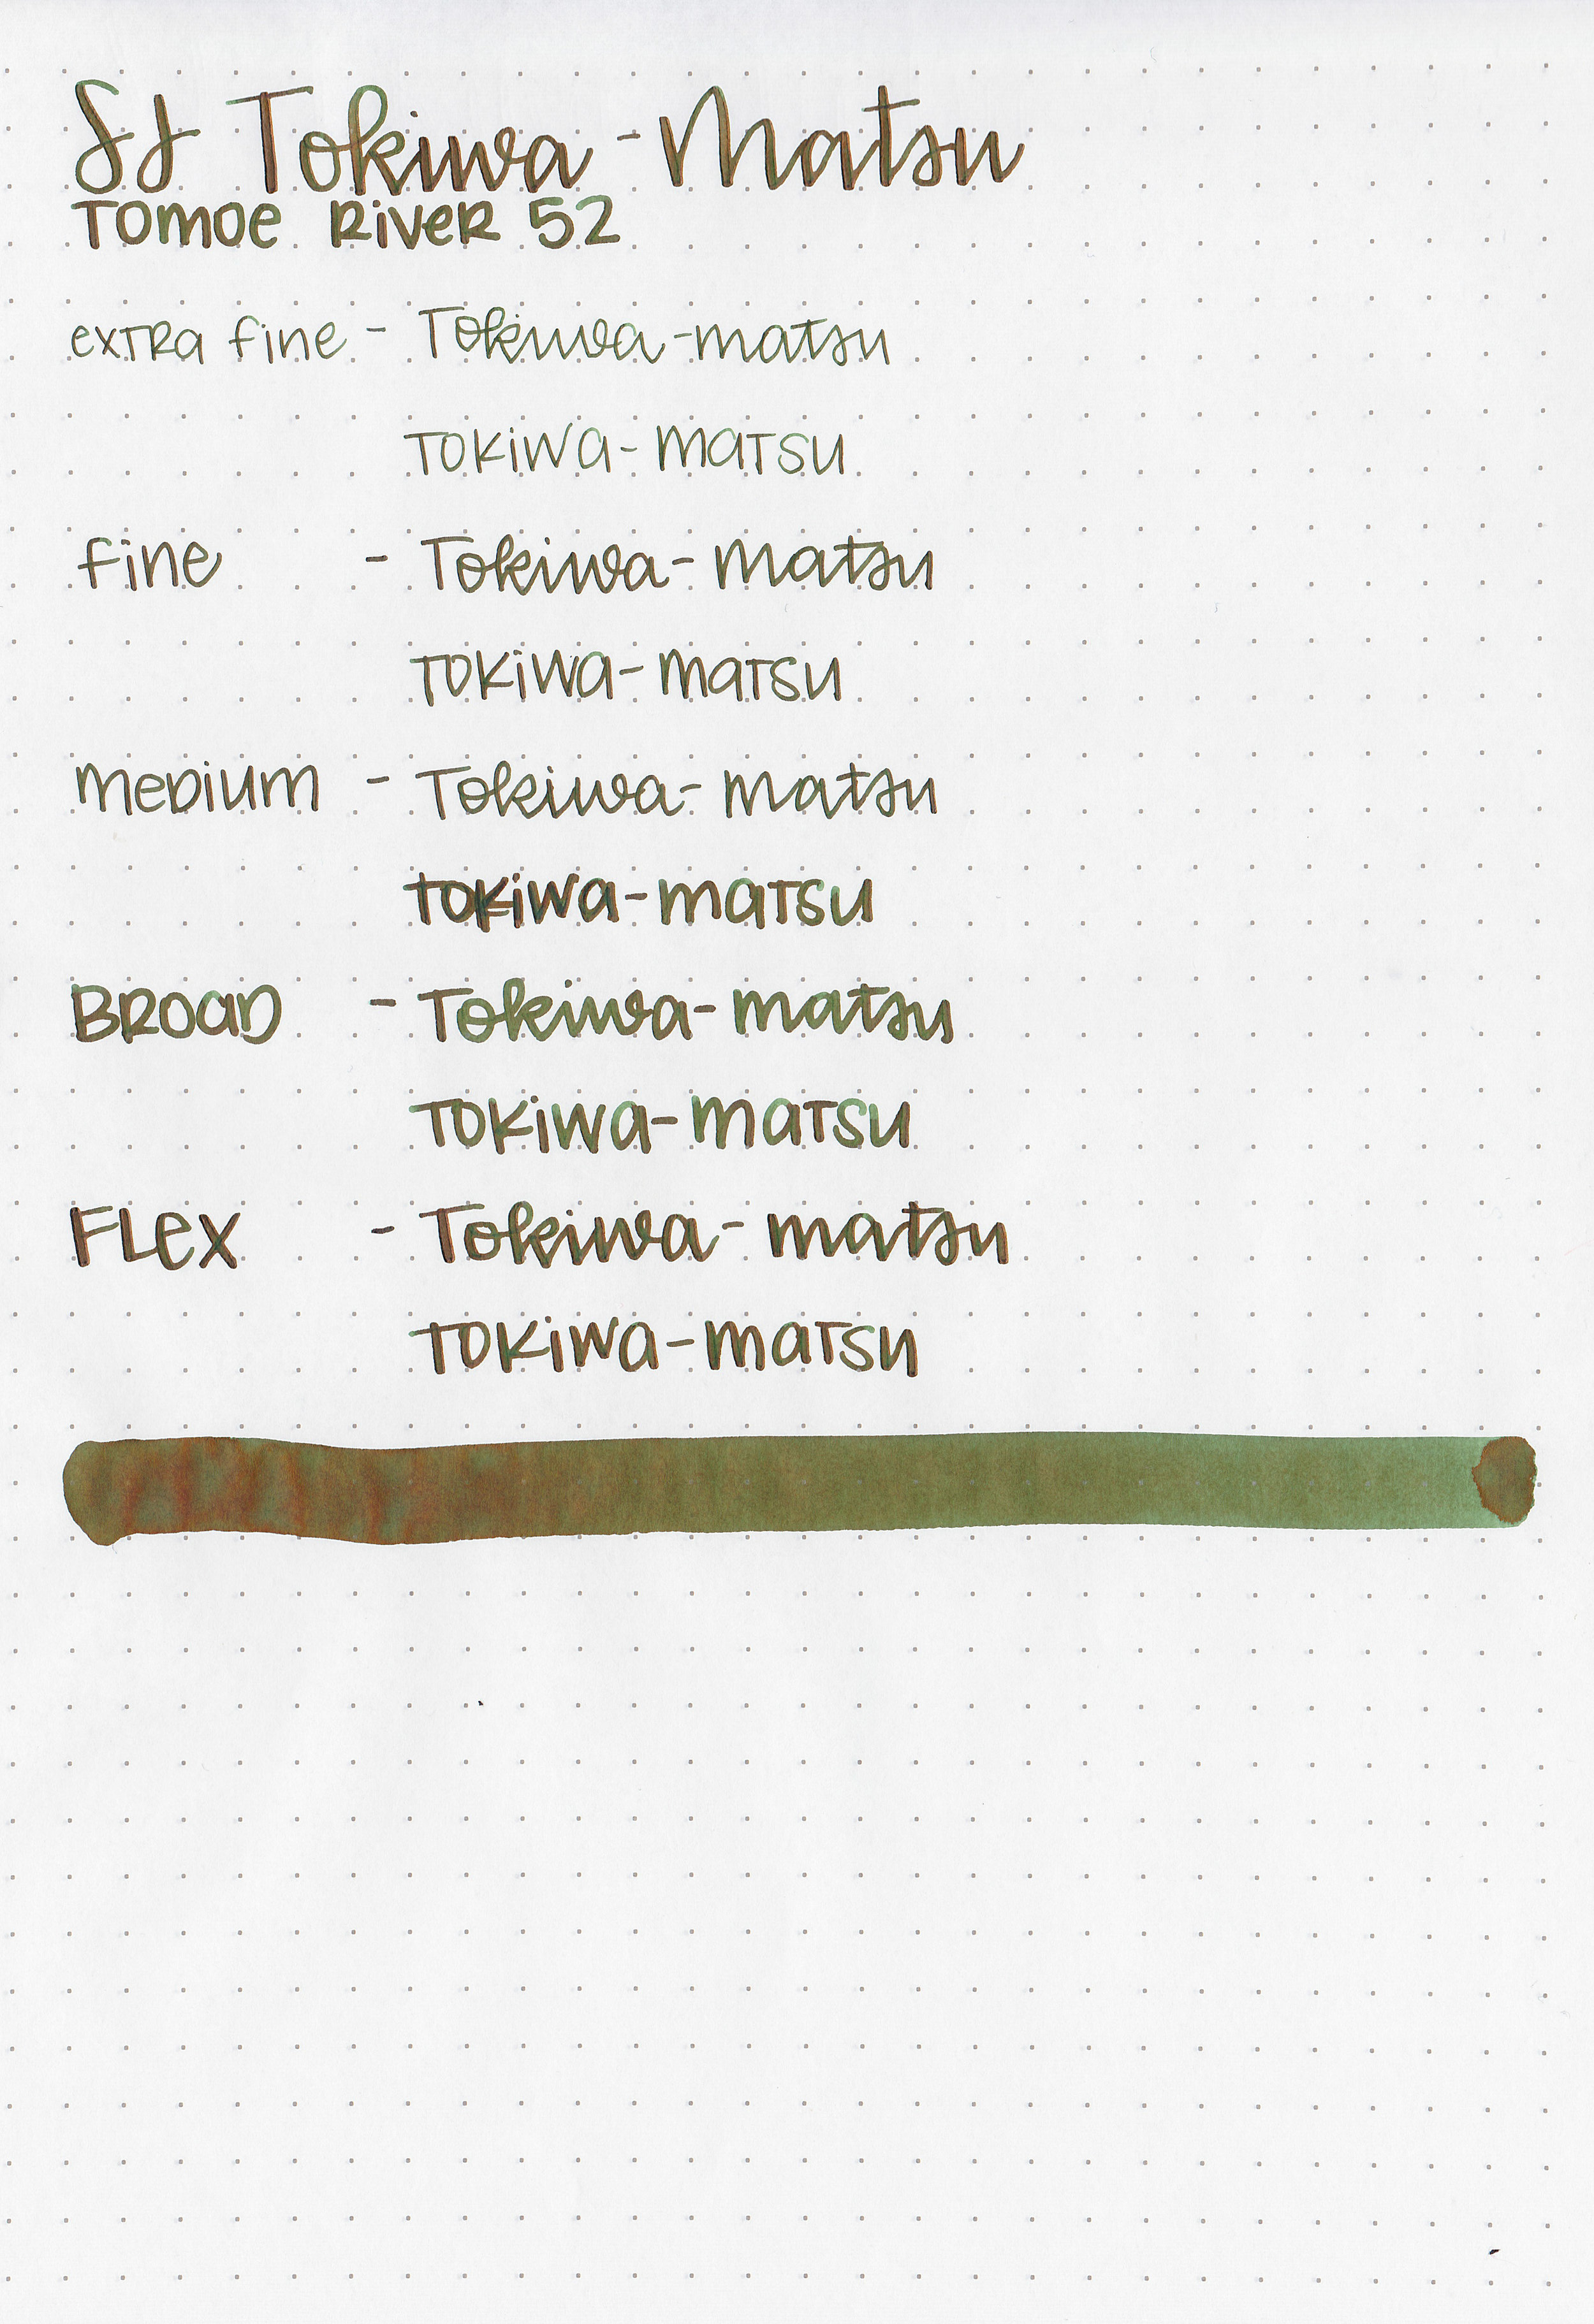 SJ Tokiwa-Matsu
Tomoe River 52
extra fine - Tokiwa-matsu
Tokiwa-matsu
fine - Tokiwa-matsu
Tokiwa-matsu
medium - Tokiwa-matsu
Tokiwa-matsu
Broad - Tokiwa-matsu
Tokiwa-matsu
Flex - Tokiwa-matsu
Tokiwa-matsu